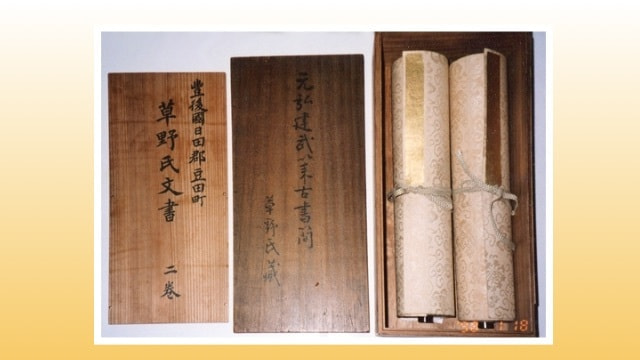 豊後國日田郡豆田町
草野氏文書
二巻
元弘建武以来古書簡
草野氏蔵